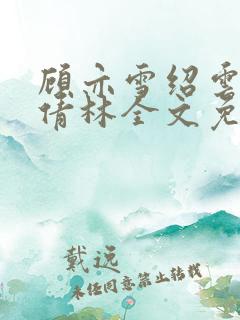 顾亦雪绍云
倩林全文免
戴远
未经同意禁止转载